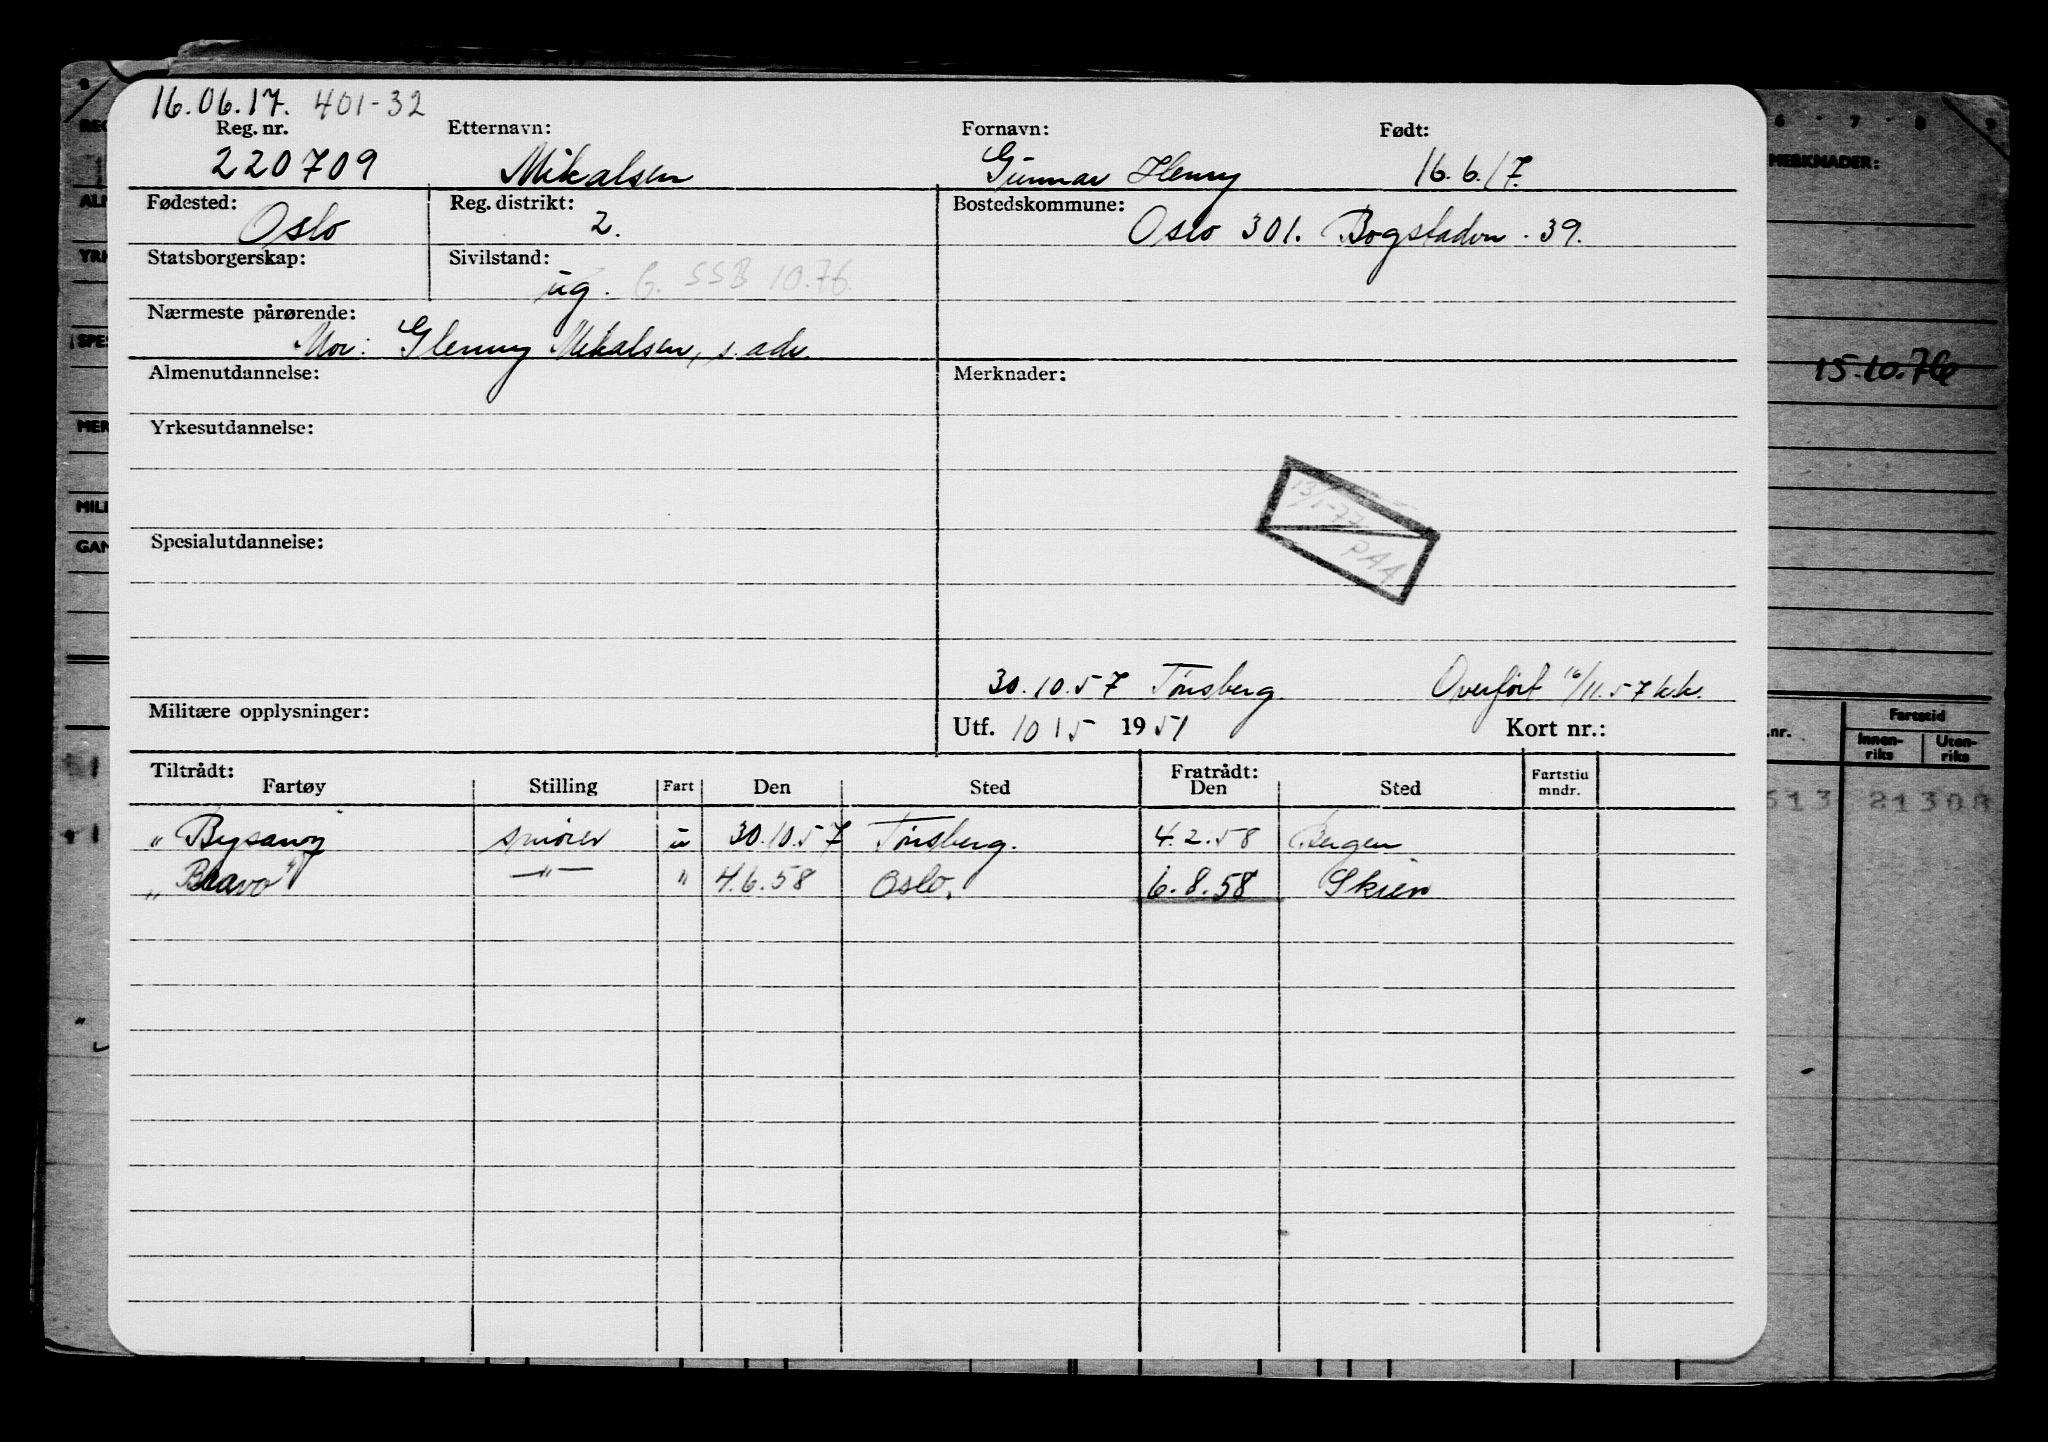 16.06.17. 401-32
Reg. nr. Etternavn: Fornavn: Født:
220709 Mikalsen Gunnar Henry 16.6.17.
Fødested: Reg. distrikt: Bostedskommune:
Oslo 2. Oslo 301. Bogstadvn. 39.
Statsborgerskap: Sivilstand:
ug. G. SSB 10.76
Nærmeste pårørende:
Mor: Glenny Mikalsen, s. adr.
Almenutdannelse: Merknader:
Yrkesutdannelse:
13/1-77
PAA
Spesialutdannelse:
30.10.57 Tønsberg Overført 16/11.57 kk.
Militære opplysninger: Utf. 10 15 1951 Kort nr.:
Tiltrådt: Fratrådt:
Fartøy Stilling Fart Den Sted Den Sted Fartstid mndr.
"Bysanz" smører u 30.10.57 Tønsberg. 4.2.58 Bergen
"Bravo" —"— " 4.6.58 Oslo. 6.8.58 Skien
6 7 8 9
MERKNADER:
15.10.76
nr. Fartstid
Innen-riks Uten-riks
513 21308
REG
ALM
YRK
SPES
MER
MILI
GAM